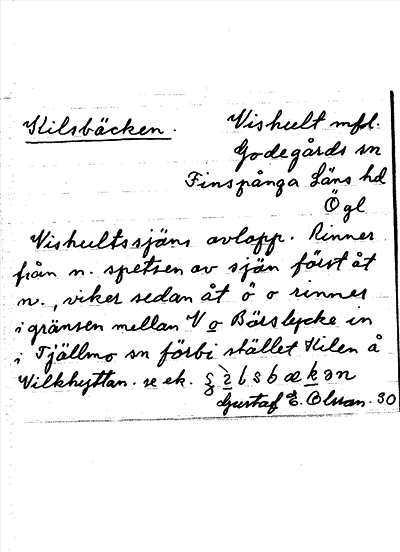 Kilsbäcken.
Vishult mfl.
Godegårds sn
Finspånga Läns hd
Ögl
Vishultssjöns avlopp. Rinner
från n. spetsen av sjön först åt
n., viker sedan åt ö o rinner
i gränsen mellan V o Börslycke in
i Tjällmo sn förbi stället Kilen å
se ek.
Gustaf E. Olsson. 30